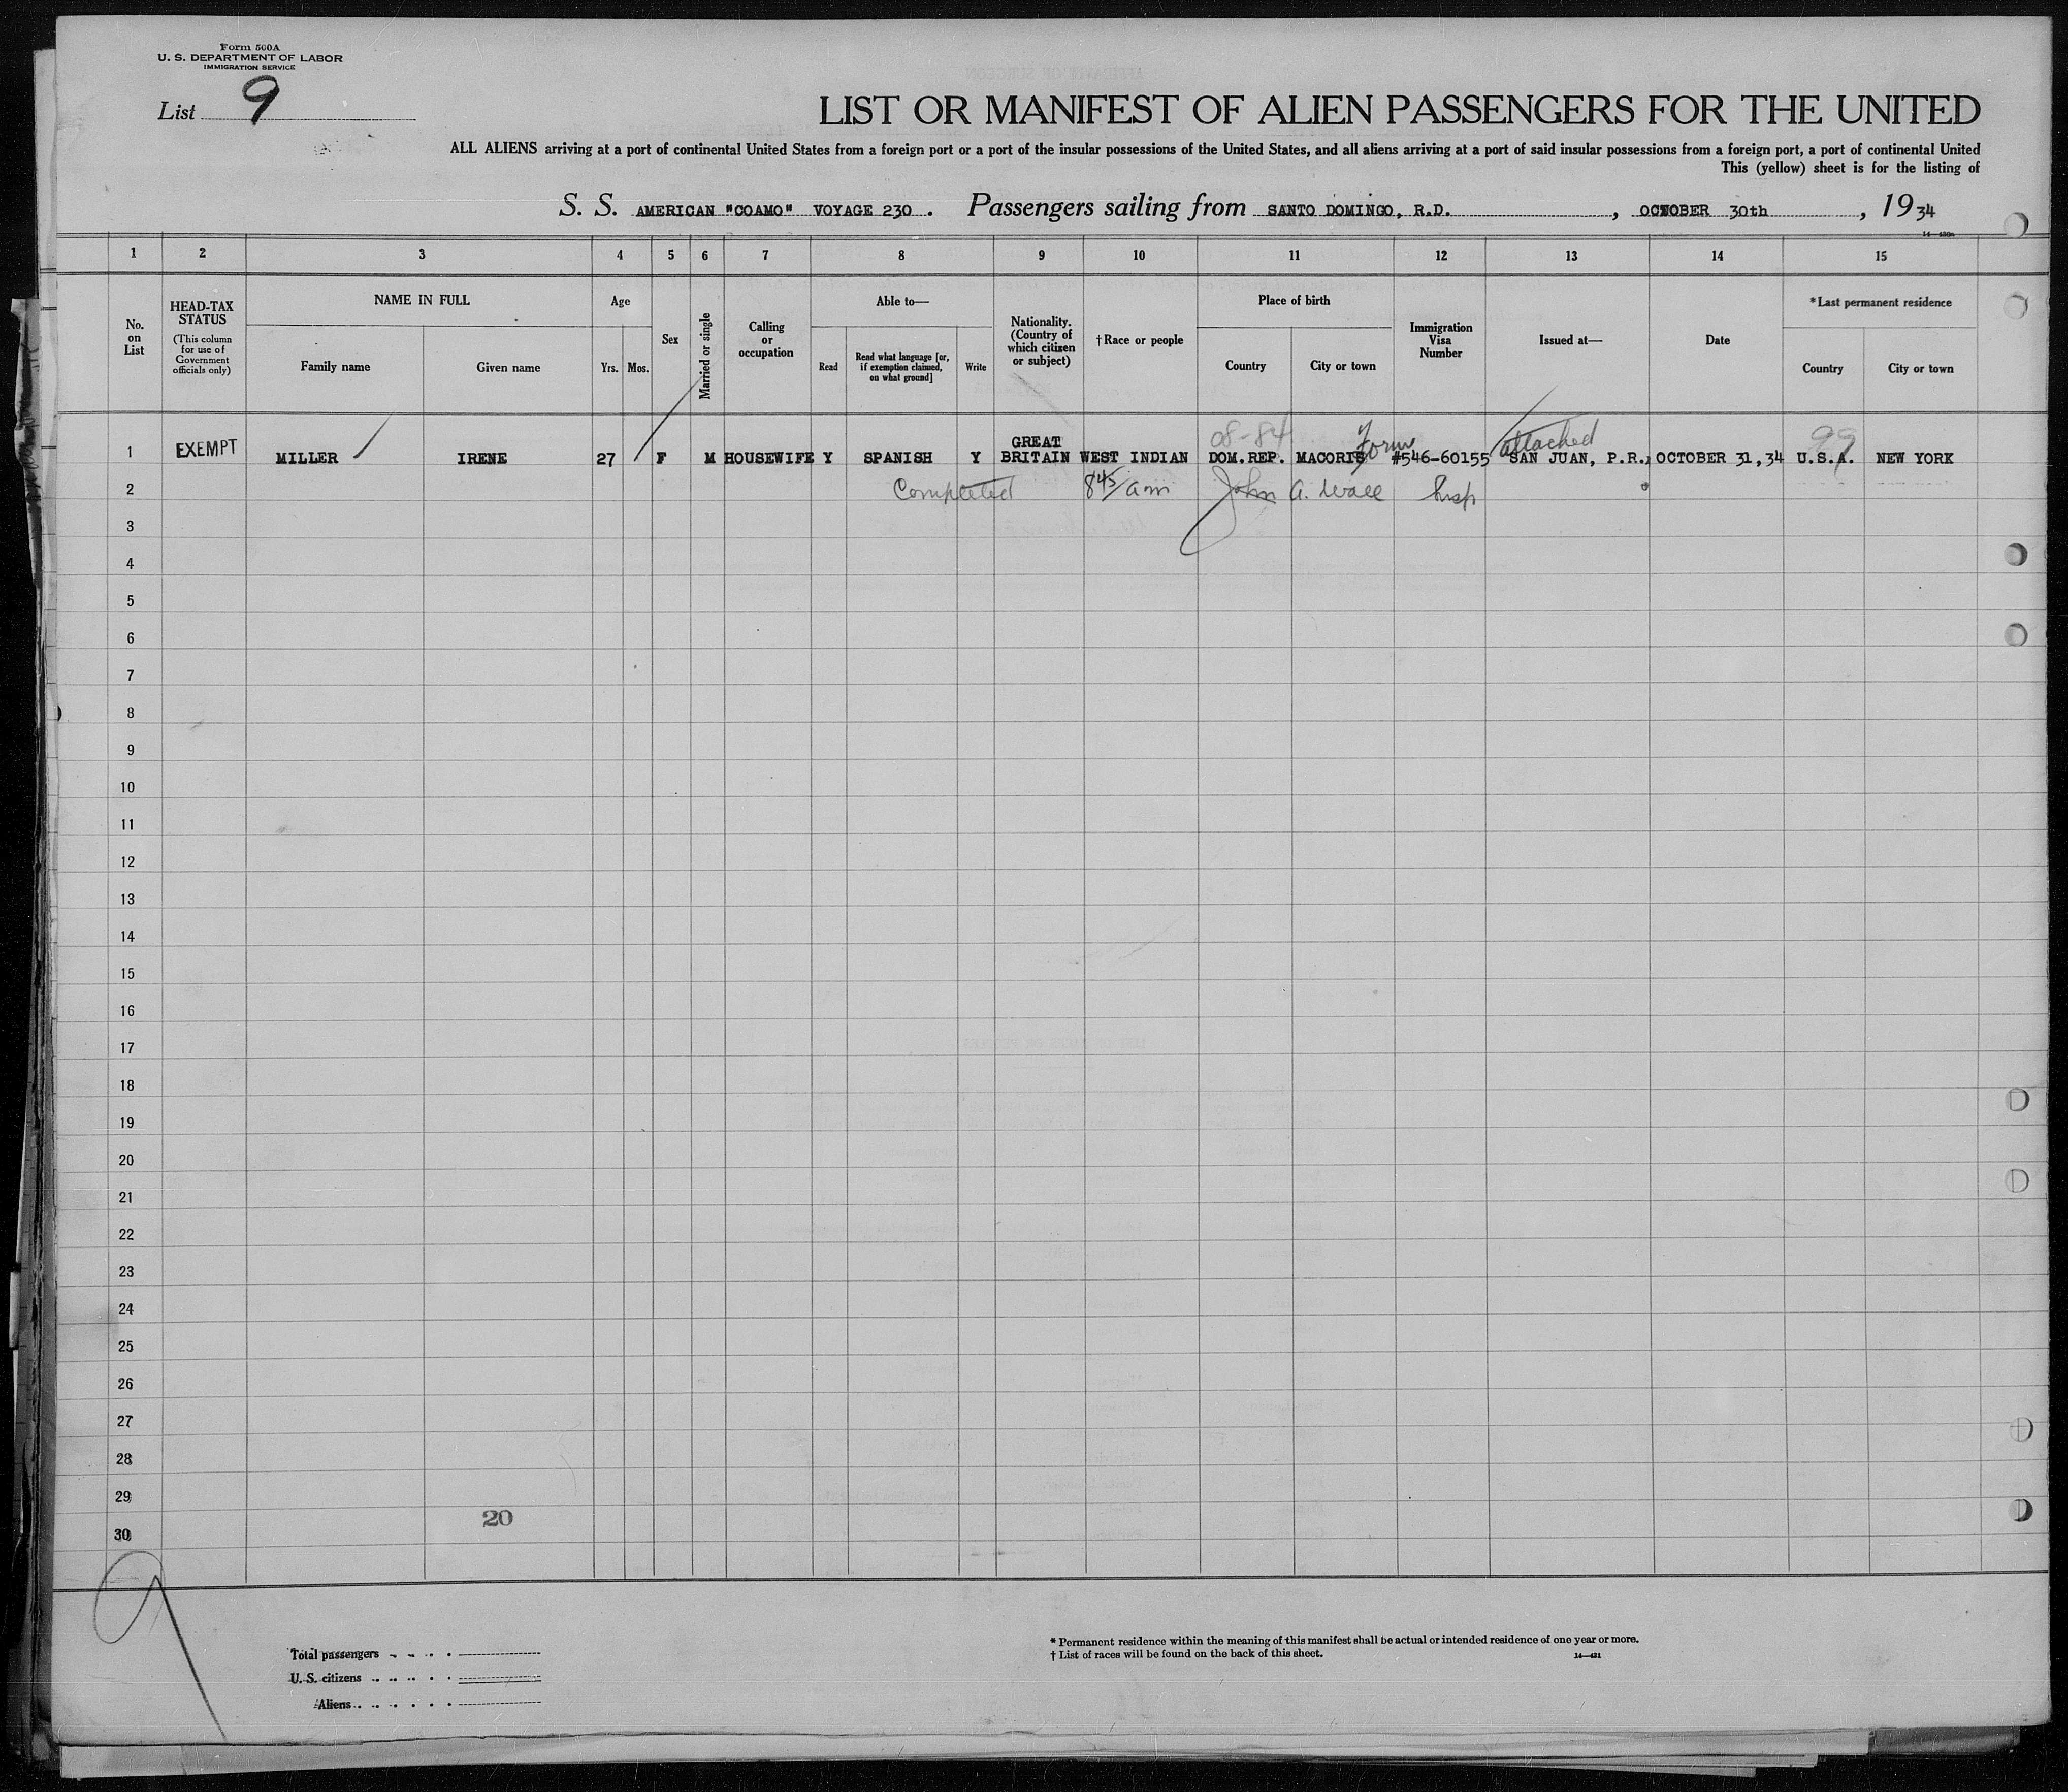 Form 500A
U. S. DEPARTMENT OF LABOR
IMMIGRATION SERVICE
List 9
LIST OR MANIFEST OF ALIEN PASSENGERS FOR THE UNITED
ALL ALIENS arriving at a port of continental United States from a foreign port or a port of the insular possessions of the United States, and all aliens arriving at a port of said insular possessions from a foreign port, a port of continental United
This (yellow) sheet is for the listing of
S. S. AMERICAN "COAMO" VOYAGE 230 . Passengers sailing from SANTO DOMINGO, R.D. , OCTOBER 30th , 19 34
1 2 3 4 5 6 7 8 9 10 11 12 13 14 15
No. on List
HEAD-TAX STATUS
(This column for use of Government officials only)
NAME IN FULL
Family name
Given name
Age
Yrs.
Mos.
Sex
Married or single
Calling or occupation
Able to—
Read
Read what language [or, if exemption claimed, on what ground]
Write
Nationality. (Country of which citizen or subject)
†Race or people
Place of birth
Country
City or town
Immigration Visa Number
Issued at—
Date
*Last permanent residence
Country
City or town
08-84 Form attached 99
1 EXEMPT MILLER IRENE 27 F M HOUSEWIFE Y SPANISH Y GREAT BRITAIN WEST INDIAN DOM.REP. MACORIS #546-60155 SAN JUAN, P.R., OCTOBER 31,34 U.S.A. NEW YORK
2 Completed 845/am John A. Wall Insp
3
4
5
6
7
8
9
10
11
12
13
14
15
16
17
18
19
20
21
22
23
24
25
26
27
28
29
20
30
9
Total passengers
U. S. citizens
Aliens
* Permanent residence within the meaning of this manifest shall be actual or intended residence of one year or more.
† List of races will be found on the back of this sheet.